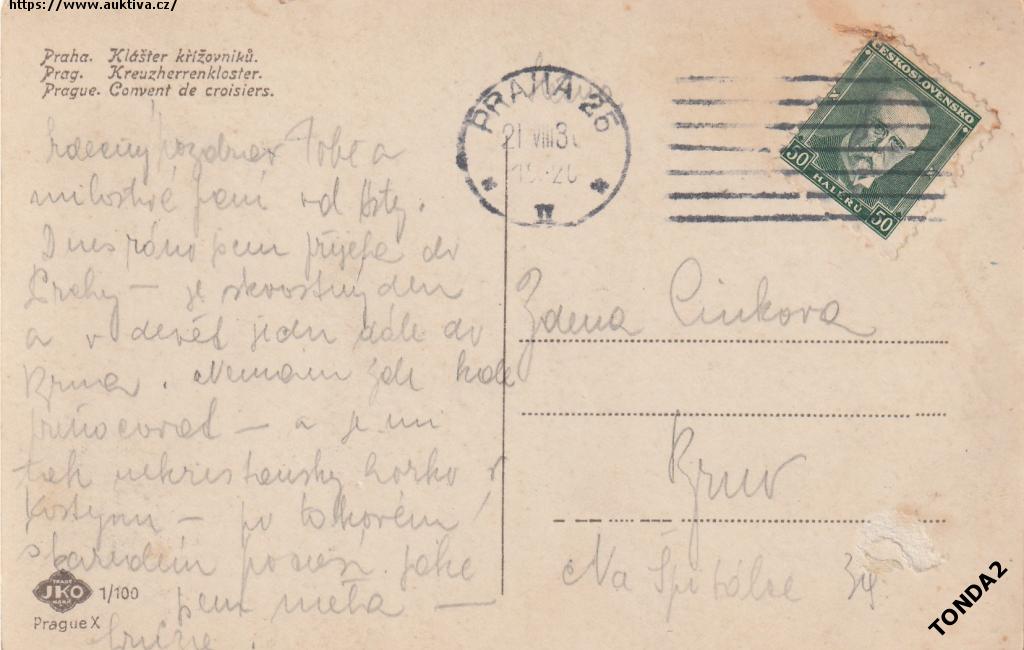 https://www.auktiva.cz/
Praha. Klášter křižovníků.
Prag. Kreuzherrenkloster.
Prague. Convent de croisiers.
Srdečný pozdrav Tobě a
milostivé paní od
Dnes ráno jsem přijela do
Prahy – je skvostný den
a v devět jedu dále do
Brna. Nemám zde kde
přenocovat – a je mi
tak nekřesťansky horko v
kostymu – po takovém
jaké
jsem měla –
PRAHA 25
21 VIII 3
ČESKOSLOVENSKO
50 HALÉŘŮ 50
Zdena Cinkova
Brno
Na Špitálce 34
TRADE
JKO
MARK
1/100
Prague X
TONDA2